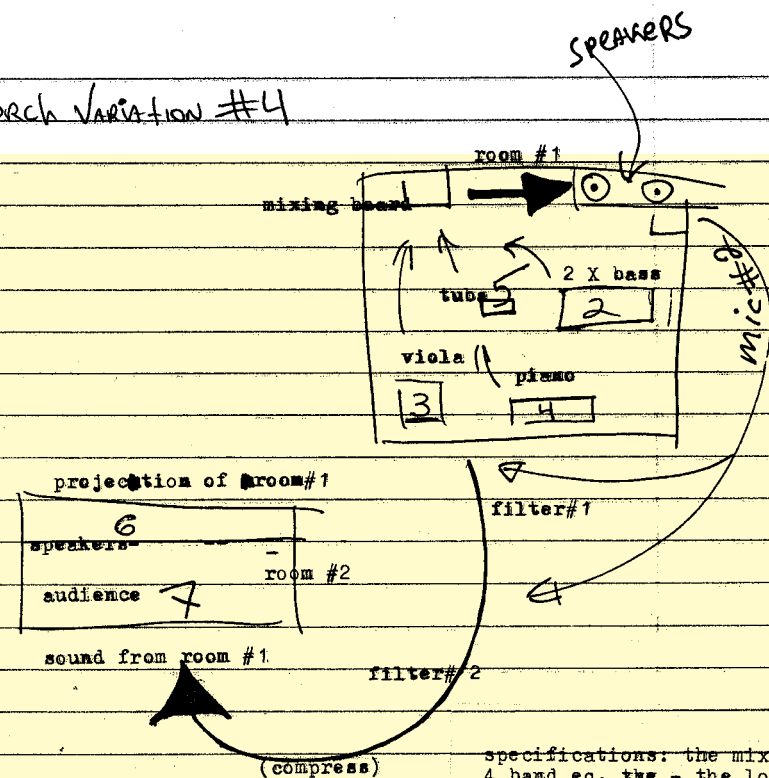 SPEAKERS
ORCh VARIATION #4
room #1
mixing board
mic #2
2 X bass
tuba
2
viola
piano
3
4
projection of room#1
filter#1
6
speakers-
room #2
audience 7
sound from room #1
filter# 2
(compress)
specifications: the mix
4 band eq. the - the lo